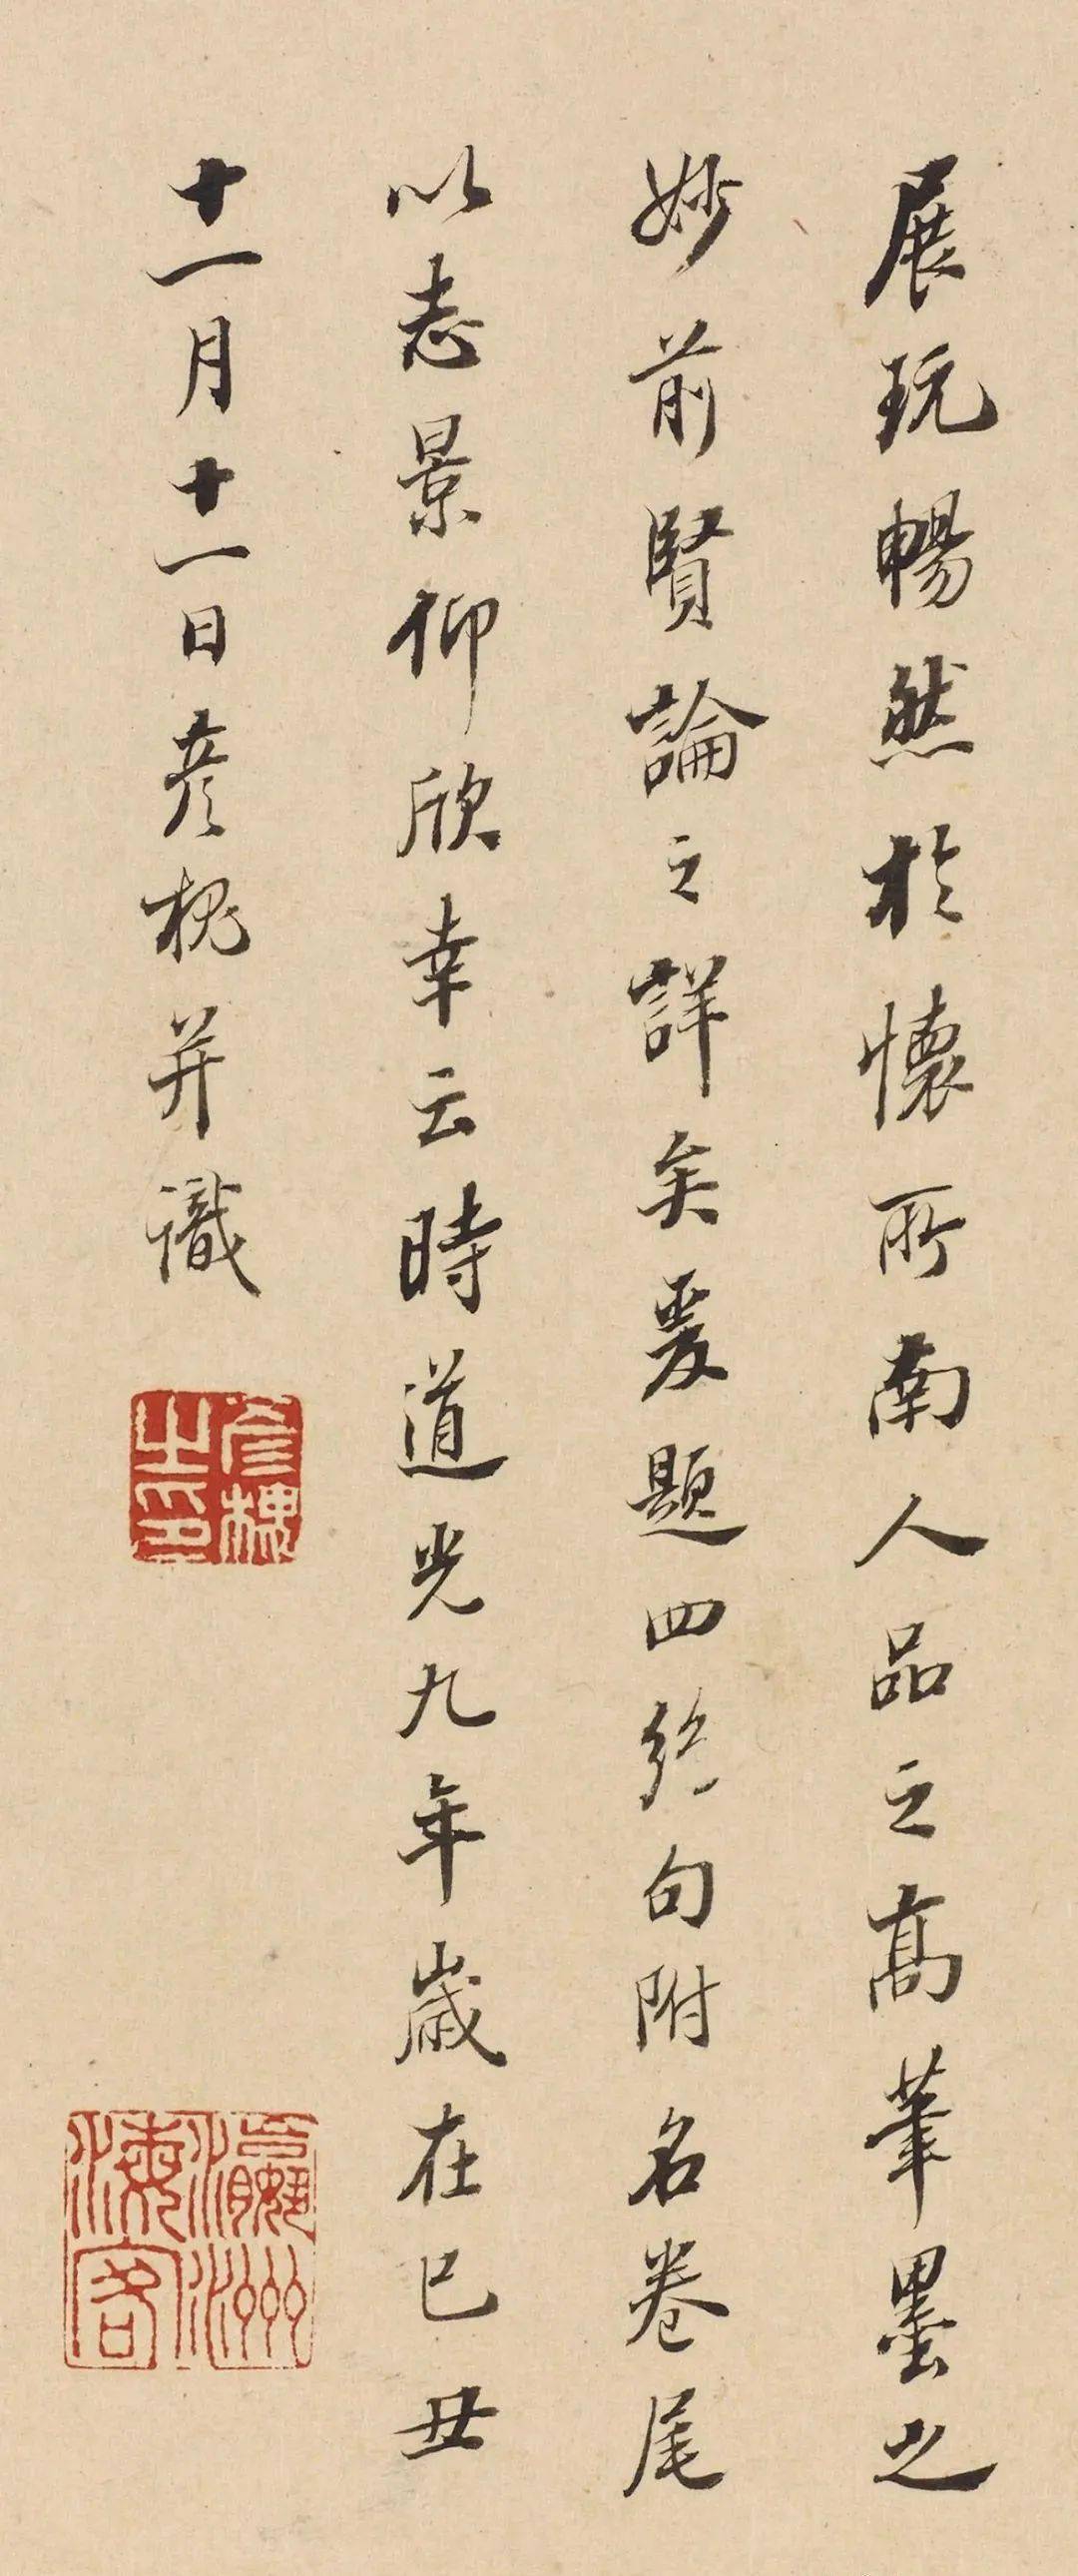 展玩暢然於懷所南人品之高筆墨之
妙前賢論之詳矣爰題四絕句附名卷尾
以志景仰欣幸云時道光九年歲在己丑
十一月十一日彥槐并識
彥槐之印
瀛洲海客